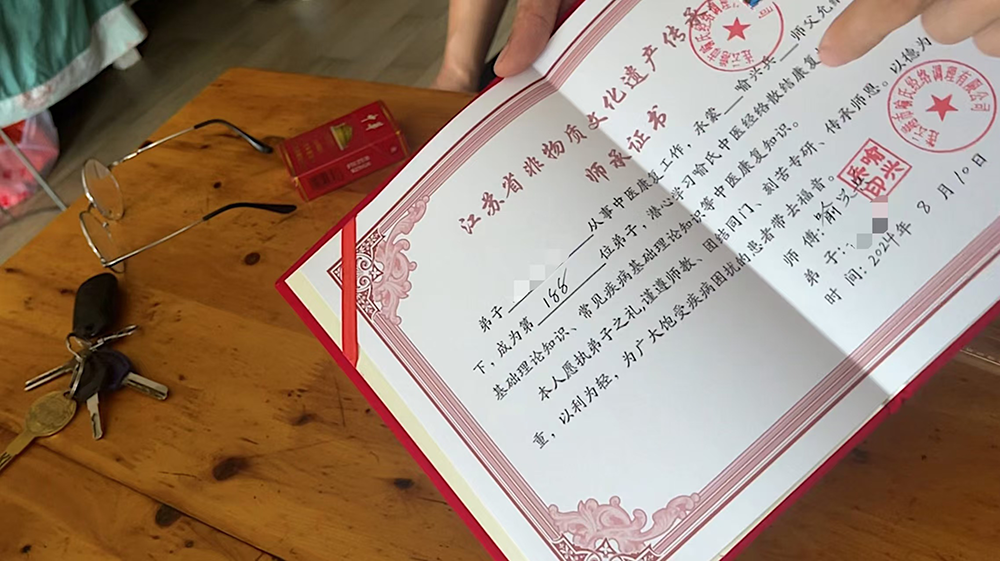 江苏省非物质文化遗产传承
师承证书
弟子 从事中医康复工作，承蒙 喻兴兵 师父允
下，成为第 188 位弟子，潜心学习喻氏中医经络散结康复
基础理论知识、常见疾病基础理论知识等中医康复知识。
本人愿执弟子之礼，谨遵师教、团结同门、刻苦专研、传承师恩。以德为
重，以利为轻，为广大饱受疾病困扰的患者带去福音。
师傅：喻兴兵
弟子：
时间：2024年 8月10日
喻氏经络调理有限公司